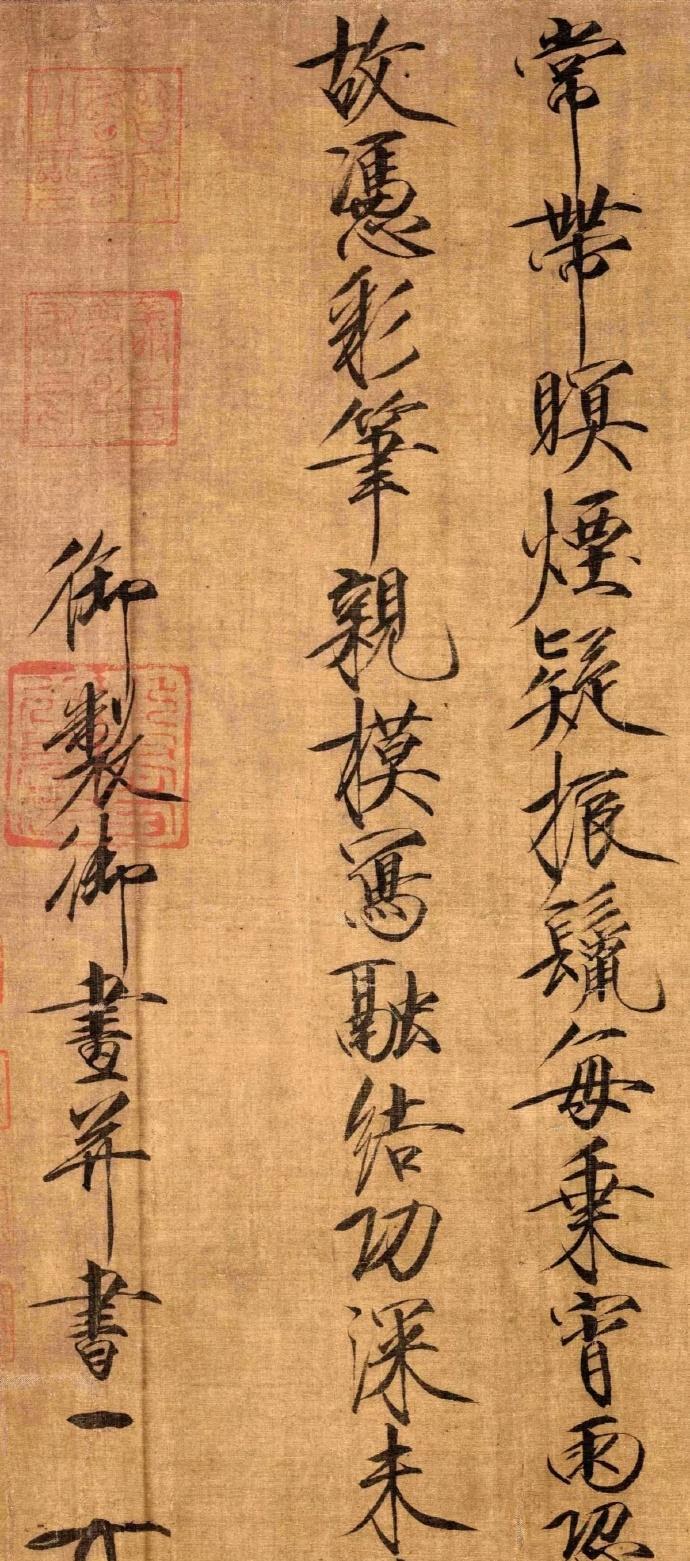 常帶暝煙疑振鬣每乗宵雨恐
故憑彩筆親模寫融結功深未
御製御畫并書一